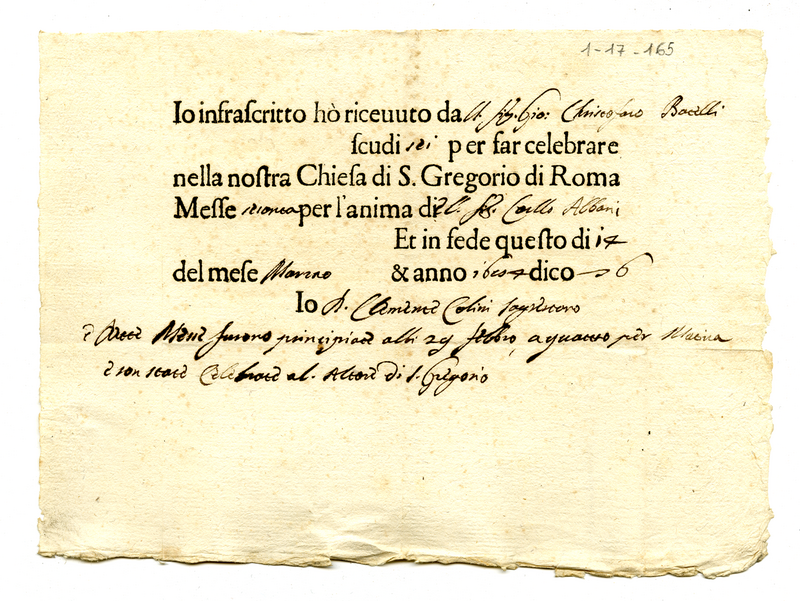 1-17-165
Io infrascritto hò riceuuto dall Sig. Gio: Christofaro Bacelli
scudi sei per far celebrare
nella nostra Chiesa di S. Gregorio di Roma
Messe per l'anima di Albani
Et in fede questo di 14
del mese Marzo & anno dico 6
Io D. Clemente Celini
Messe furono principiate alli 29 febbro, a quattro per Matina
e son state Celebrate al Altare di S. Gregorio